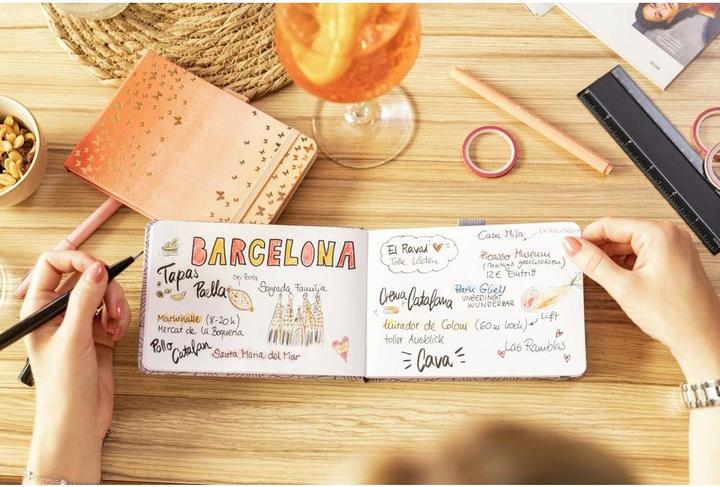 BARCELONA
Tapas
Paella
bei Paola
Sagrada Familia
Markthalle (8-20h)
Mercat de la Boqueria
Pollo
Catalan
Santa Maria del Mar
El Raval
Tolle Läden
Casa Mila
Picasso Museum
(Montags geschlossen)
12€ Eintritt
Crema Catalana
Park Güell
UNBEDINGT
WUNDERBAR
Mirador de Colom (60m hoch)
Lift
toller Ausblick
Las Ramblas
Cava